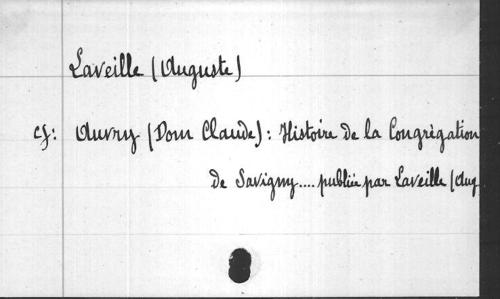 Laveille (Auguste)
cf: Auvry (Dom Claude): Histoire de la Congrégation
de Savigny.... publiée par Laveille (Aug